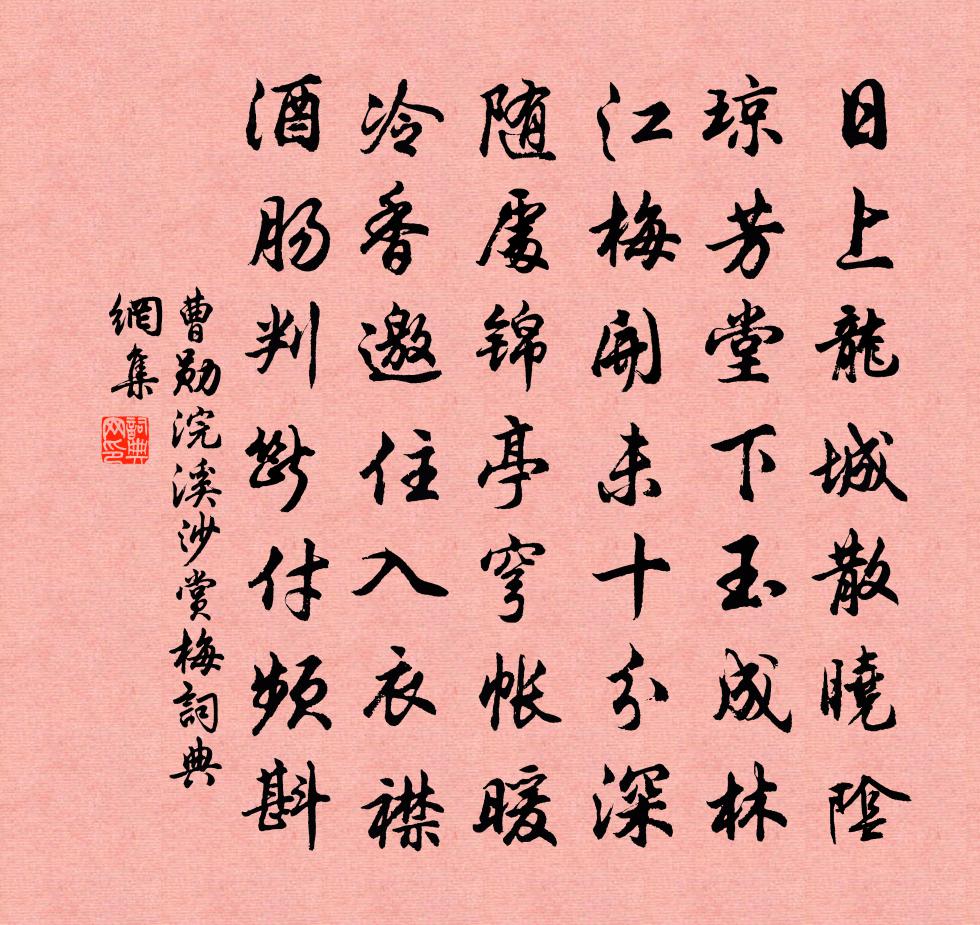 日上龍城散曉陰
琼芳堂下玉成林
江梅開未十分深
随處锦亭穹帐暖
冷香邀住入衣襟
酒肠判断付频斟
曹勋浣溪沙赏梅詞典
網集
詞典網印